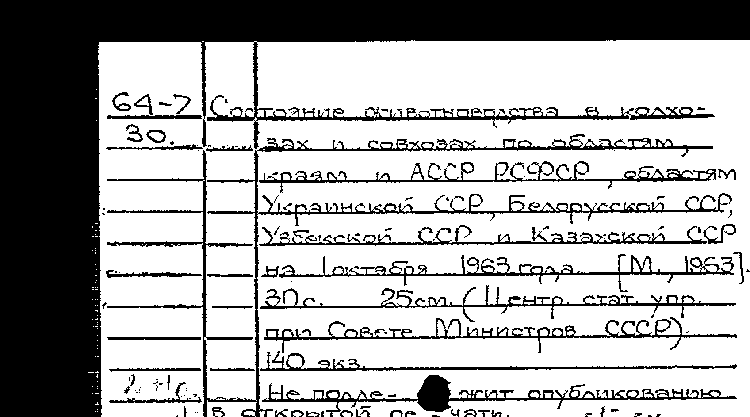 64-7 Состояние животноводства в колхо-
30. зах и совхозах по областям,
краям и АССР РСФСР, областям
Украинской ССР, Белорусской ССР,
Узбекской ССР и Казахской ССР
на 1 октября 1963 года. [М., 1963].
30 с. 25 см. (Центр. стат. упр.
при Совете Министров СССР)
140 экз.
Не подле- жит опубликованию
в открытой пе- чати.